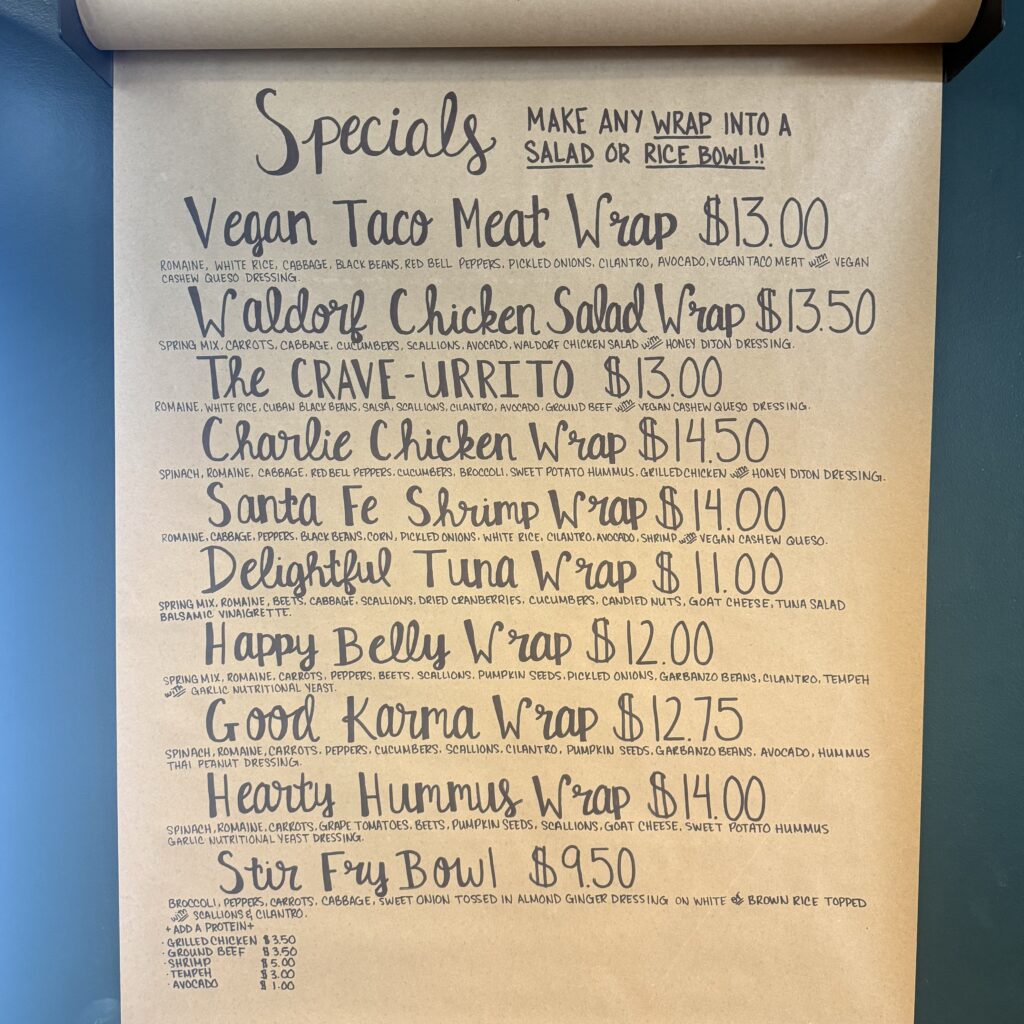 Specials
MAKE ANY WRAP INTO A
SALAD OR RICE BOWL!!
Vegan Taco Meat Wrap $13.00
ROMAINE, WHITE RICE, CABBAGE, BLACK BEANS, RED BELL PEPPERS, PICKLED ONIONS, CILANTRO, AVOCADO, VEGAN TACO MEAT with VEGAN
CASHEW QUESO DRESSING.
Waldorf Chicken Salad Wrap $13.50
SPRING MIX, CARROTS, CABBAGE, CUCUMBERS, SCALLIONS, AVOCADO, WALDORF CHICKEN SALAD with HONEY DIJON DRESSING.
The CRAVE-URRITO $13.00
ROMAINE, WHITE RICE, CUBAN BLACK BEANS, SALSA, SCALLIONS, CILANTRO, AVOCADO, GROUND BEEF with VEGAN CASHEW QUESO DRESSING.
Charlie Chicken Wrap $14.50
SPINACH, ROMAINE, CABBAGE, RED BELL PEPPERS, CUCUMBERS, BROCCOLI, SWEET POTATO HUMMUS, GRILLED CHICKEN with HONEY DIJON DRESSING.
Santa Fe Shrimp Wrap $14.00
ROMAINE, CABBAGE, PEPPERS, BLACK BEANS, CORN, PICKLED ONIONS, WHITE RICE, CILANTRO, AVOCADO, SHRIMP with VEGAN CASHEW QUESO.
Delightful Tuna Wrap $11.00
SPRING MIX, ROMAINE, BEETS, CABBAGE, SCALLIONS, DRIED CRANBERRIES, CUCUMBERS, CANDIED NUTS, GOAT CHEESE, TUNA SALAD
BALSAMIC VINAIGRETTE.
Happy Belly Wrap $12.00
SPRING MIX, ROMAINE, CARROTS, PEPPERS, BEETS, SCALLIONS, PUMPKIN SEEDS, PICKLED ONIONS, GARBANZO BEANS, CILANTRO, TEMPEH
with GARLIC NUTRITIONAL YEAST.
Good Karma Wrap $12.75
SPINACH, ROMAINE, CARROTS, PEPPERS, CUCUMBERS, SCALLIONS, CILANTRO, PUMPKIN SEEDS, GARBANZO BEANS, AVOCADO, HUMMUS
THAI PEANUT DRESSING.
Hearty Hummus Wrap $14.00
SPINACH, ROMAINE, CARROTS, GRAPE TOMATOES, BEETS, PUMPKIN SEEDS, SCALLIONS, GOAT CHEESE, SWEET POTATO HUMMUS
GARLIC NUTRITIONAL YEAST DRESSING.
Stir Fry Bowl $9.50
BROCCOLI, PEPPERS, CARROTS, CABBAGE, SWEET ONION TOSSED IN ALMOND GINGER DRESSING ON WHITE & BROWN RICE TOPPED
with SCALLIONS & CILANTRO.
+ADD A PROTEIN+
· GRILLED CHICKEN $3.50
· GROUND BEEF $3.50
· SHRIMP $5.00
· TEMPEH $3.00
· AVOCADO $1.00